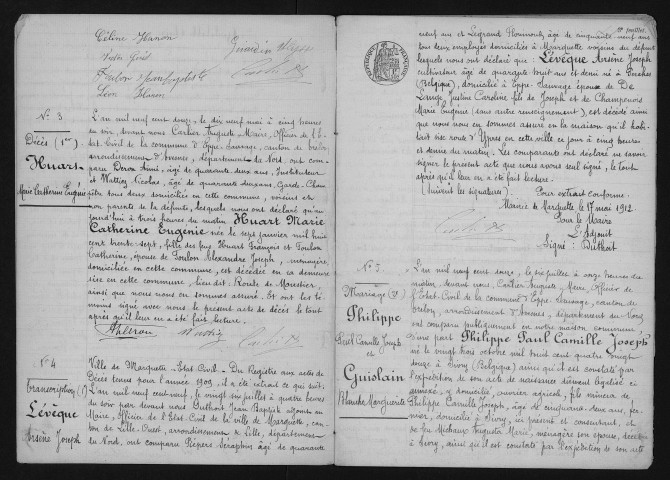 Céline Hanon
Léon Hanon
N° 3
Décès (1er)
Huart
Marie Catherine Eugénie
L'an mil neuf cent douze, le dix neuf mai à cinq heures
du soir, devant nous Cartier Auguste Maire, Officier de l'E-
tat-Civil de la commune d'Eppe-Sauvage, canton de Trélon
arrondissement d'Avesnes, département du Nord, ont com-
paru Deron âgé de quarante deux ans, Instituteur
et Wattiez Nicolas, âgé de quarante ans, Garde-Cham-
pêtre tous deux domiciliés en cette commune, voisins et
non parents de la défunte, lesquels nous ont déclaré qu'au-
jourd'hui à trois heures du matin Huart Marie
Catherine Eugénie née le sept janvier mil huit
cent trente-sept, fille des feus Huart François et Toulon
Catherine, épouse de Toulon Alexandre Joseph, ménagère,
domiciliée en cette commune, est décédée en sa demeure
sise en cette commune, lieu dit: Route de Moustier,
ainsi que nous nous en sommes assuré. Et ont les té-
moins signé avec nous le présent acte de décès le tout
après qu'il leur en a été fait lecture.
N° 4
transcription (1)
Lévêque
Arsène Joseph
Ville de Marquette - Etat Civil. - Du Registre aux actes de
Décès tenus pour l'année 1909, il a été extrait ce qui suit:
L'an mil neuf cent neuf, le vingt six juillet à quatre heures
du soir par devant nous Duthoit Jean Baptiste adjoint au
Maire, officier de l'Etat-Civil de la ville de Marquette, can-
ton de Lille-Ouest, arrondissement de Lille, département
du Nord, ont comparu Pépers Séraphin âgé de quarante
12 juillet
neuf ans et Legrand âgé de cinquante neuf ans
tous deux employés domiciliés à Marquette voisins du défunt
lesquels nous ont déclaré que: Lévêque Arsène Joseph
cultivateur âgé de quarante huit ans et demi né à
(Belgique), domicilié à Eppe-Sauvage époux de De
Lange Justine Caroline fils de Joseph et de Champenois
Marie Eugénie (sans autre renseignement), est décédé ainsi
que nous nous en sommes assuré en la maison qu'il habi-
tait sise rue d'Ypres en cette ville ce jour à cinq heures
et demie du matin. Les comparants ont déclaré ne savoir
signer le présent acte que nous avons seul signé, le tout
après qu'il leur en a été fait lecture.
(Suivent les signatures). Pour extrait conforme:
Mairie de Marquette le 17 mai 1912.
Pour le Maire
L'Adjoint
Signé: Duthoit
N° 5
Mariage (3e)
Philippe
Paul Camille Joseph
et
Guislain
Blanche Marguerite
L'an mil neuf cent douze, le six juillet à onze heures du
matin, devant nous, Cartier Auguste, Maire, Officier de
l'Etat-Civil de la commune d'Eppe-Sauvage, canton de
Trélon, arrondissement d'Avesnes, département du Nord
ont comparu publiquement en notre maison commune,
d'une part Philippe Paul Camille Joseph
né le vingt trois octobre mil huit cent quatre vingt
douze à Sivry (Belgique) ainsi qu'il est constaté par
l'expédition de son acte de naissance dûment légalisé ci
annexé, y domicilié, ouvrier agricole, fils mineur de
Philippe Camille Joseph, âgé de cinquante deux ans, fer-
mier, domicilié à Sivry, ici présent et consentant, et
de feu Michaux Augusta Marie, ménagère son épouse, décédée
à Sivry, ainsi qu'il est constaté par l'expédition de son acte